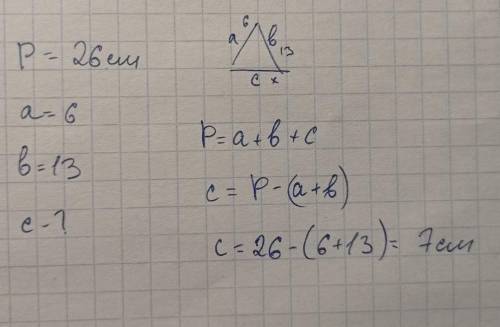 P = 26см
a = 6
в = 13
c - ?
6
a
в
13
c x
P = a + в + c
c = P - (a + в)
c = 26 - (6 + 13) = 7см